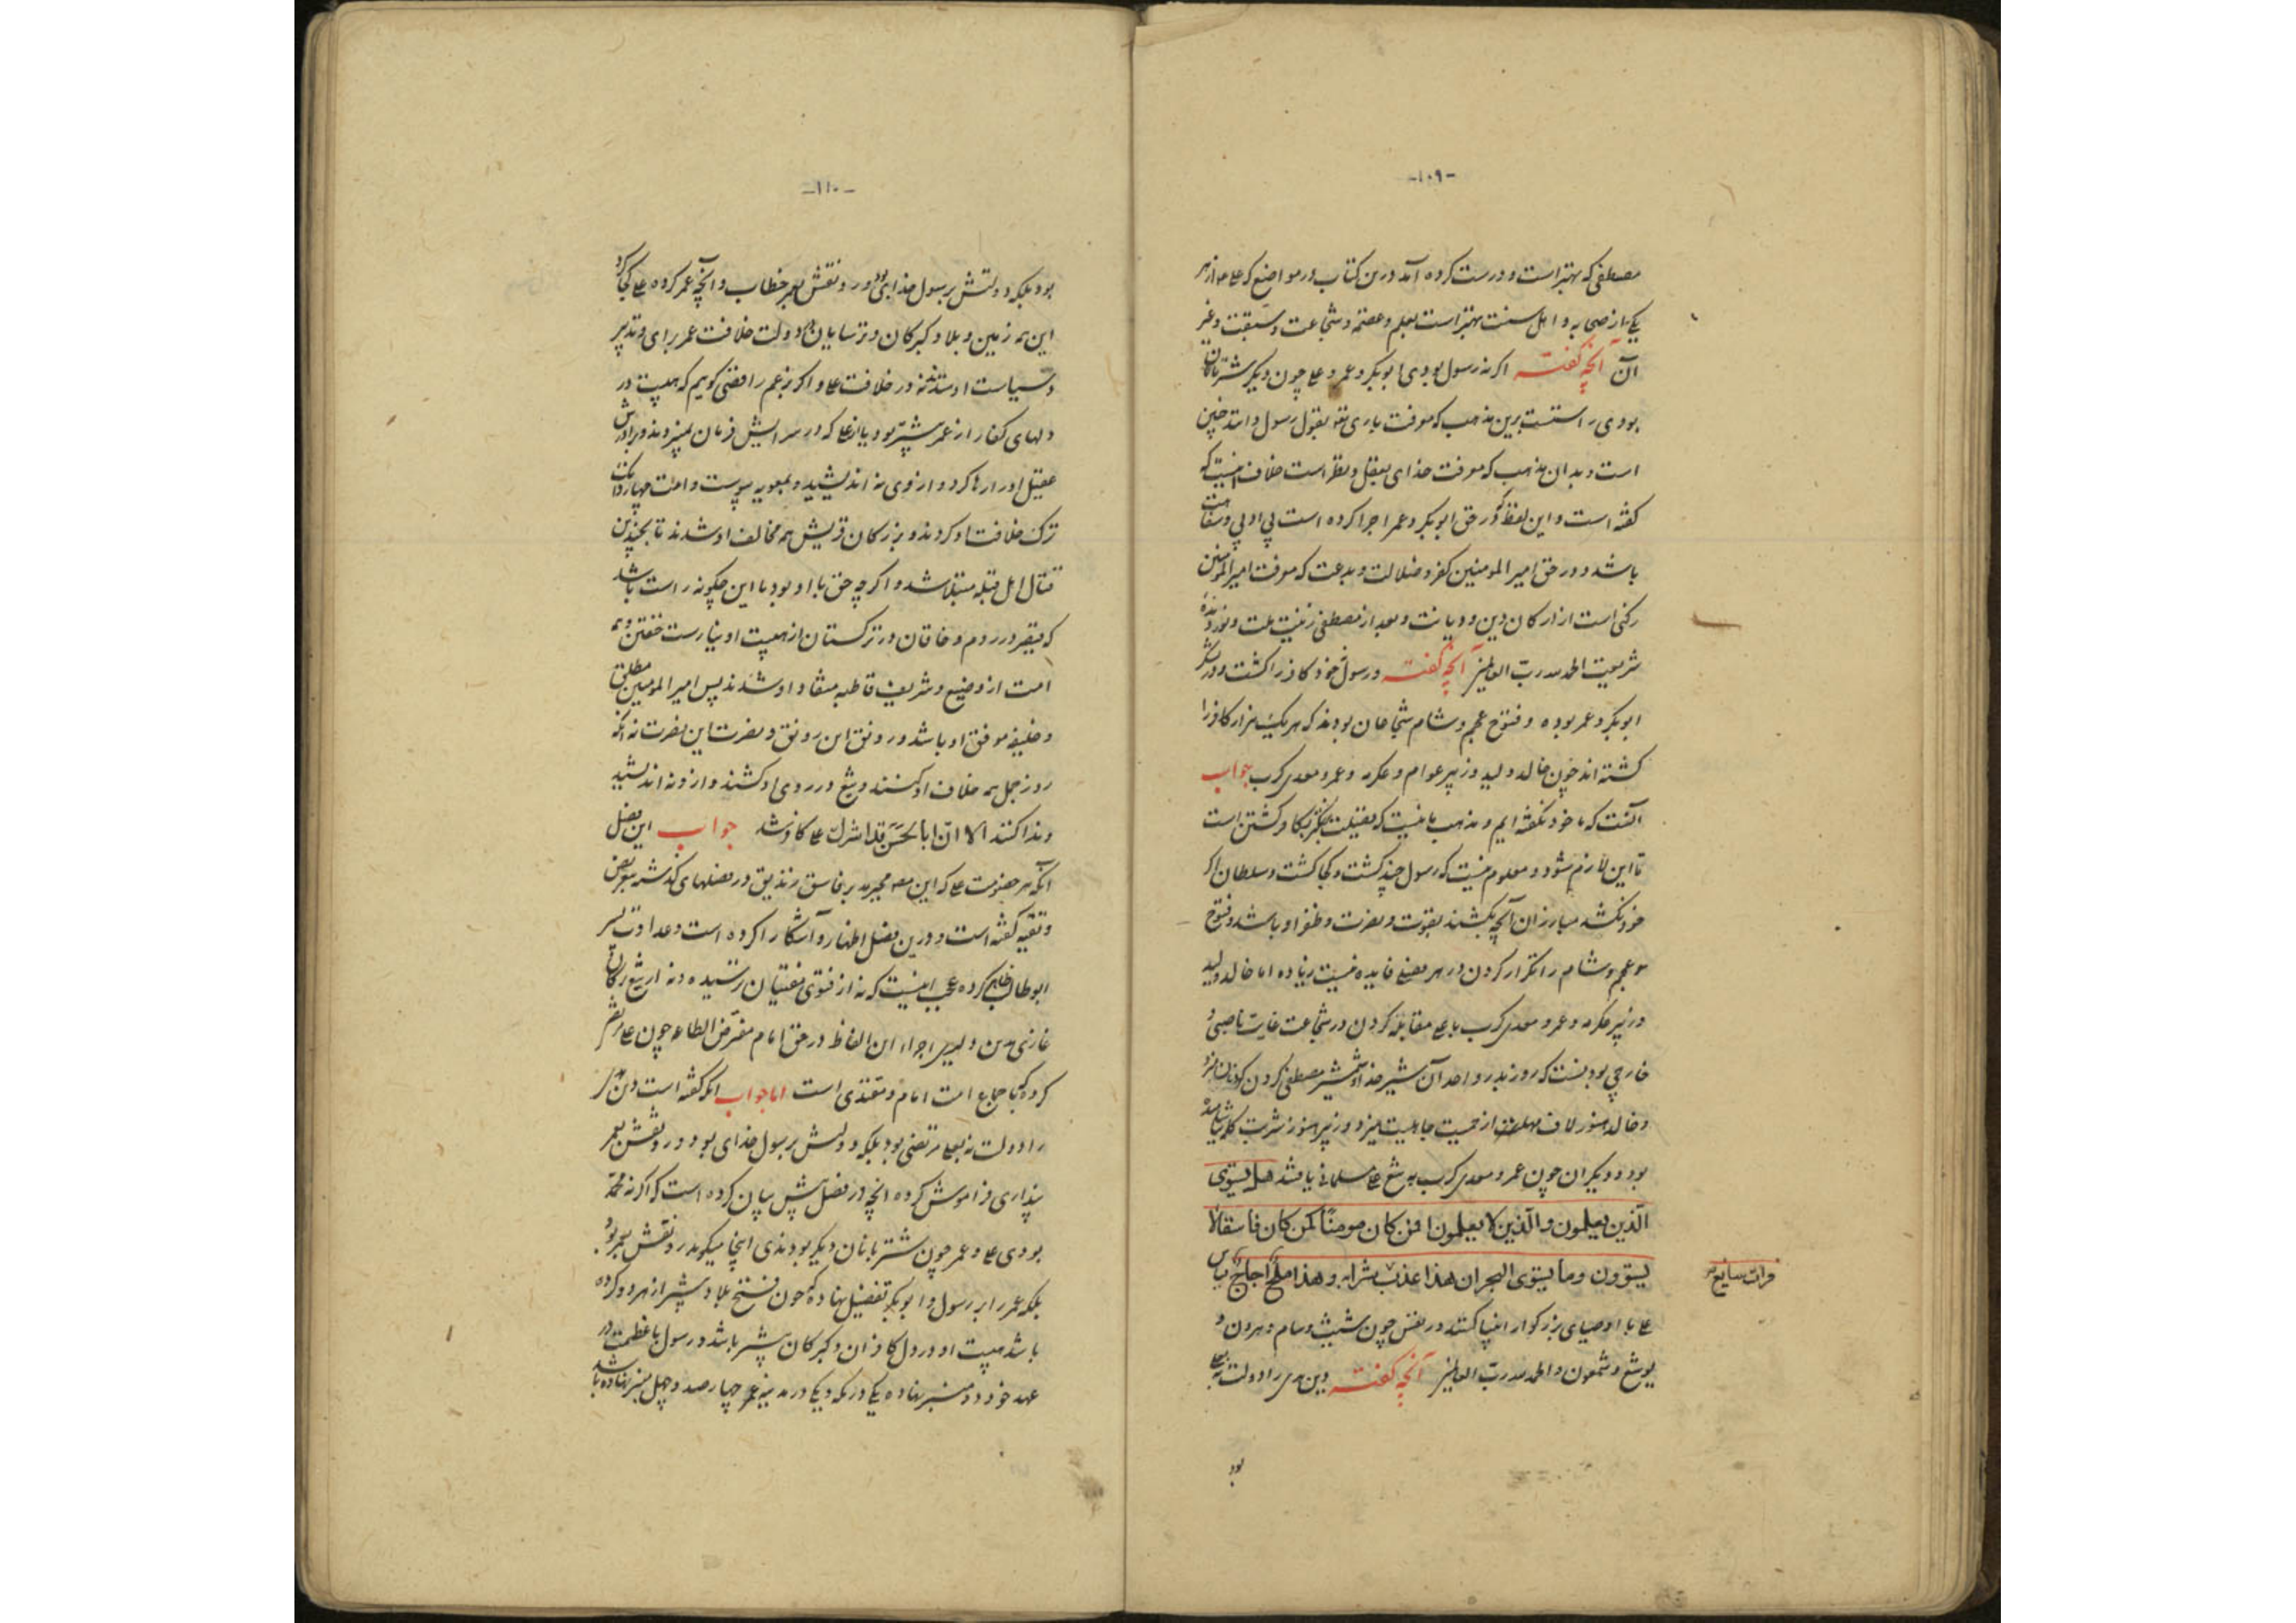 -۱۰۹-
مصطفی که بهترست و درست کرده آمد درین کتاب در مواضع که علی از هر
یکی از صحابه و اهل سنت بهتر است بعلم و عصمة و شجاعت و سبقت و غیر
آن آنچه گفته اگر نه رسول بودی ابوبکر و عمر و علی چون دیگر شتربانان
بودی راستست برین مذهب که معرفت باری تع بقول رسول دانند چنین
است و بدان مذهب که معرفت خدای بعقل و نظر است خلاف اینست که
گفته است و این لفظ که در حق ابوبکر و عمر اجرا کرده است بی ادبی و سفاهت
باشد و در حق امیر المومنین کفر و ضلالت و بدعت که معرفت امیر المومنین
رکنی است از ارکان دین و دیانت و بعد از مصطفی زینت ملت و نور دیدهٔ
شریعت الحمد لله ربّ العالمین آنچه گفته و رسول خود کافر را کشت و در لشکر
ابوبکر و عمر بوده و فتوح عجم و شام شجاعان بودند که هر یک هزار کافر را
کشته اند چون خالد ولید و زبیر عوام و عکرمه و عمرو معدی کرب جواب
آنست که ما خود نگفته ایم و مذهب ما نیست که فضیلت بکثرت کافر کشتن است
تا این لازم شود و معلوم نیست که رسول چند کشت و کجا کشت و سلطان اگر
خود نکشد مبارزان آنچه بکشند بقوت و نصرت و ظفر او باشد و فتوح
عجم و شام را تکرار کردن در هر فصلی فایده نیست زیاده اما خالد ولید
و زبیر و عکرمه و عمرو معدی کرب با علی مقابله کردن در شجاعت غایت ناصبی و
خارجی بودنست که روز بدر و احد آن شیر خدا و شمشیر مصطفی گردن گردنان میزد
و خالد هنوز لاف مهلت از حمیت جاهلیت میزد و زبیر هنوز شربت
بود و دیگران چون عمرو معدی کرب به تیغ علی مسلمانی یافتند هل یستوی
الّذین یعلمون والّذین لا یعلمون افمن کان مومنًا کمن کان فاسقًا لا
یستوون وما یستوی البحران هذا عذب شرابه و هذا ملح اجاج
فرات سایغ
علی با اوصیای بزرگوار انبیا گفتند در نفس چون شیث و سام و هرون و
یوشع و شمعون والحمد لله ربّ العالمین آنچه گفته دین هدی را دولت نه بعلی
بود
-۱۱۰-
بود بلکه دولتش برسول خدای بود و رونقش بعمر خطاب و آنچه عمر کرده علی کجا کرد
این همه زمین و بلاد گبرکان و ترسایان در دولت خلافت عمر برای و تدبیر
و سیاست او ستدند نه در خلافت علی و اگر بزعم رافضی گوییم که هیبت در
دلهای کفار از عمر بیشتر بود یا از علی که در سرایش فرمان نمیبردند و برادرش
عقیل او را رها کرد و از وی نه اندیشید و بمعویه پیوست و امت چهاردانگ
ترک خلافت او کردند و بزرگان قریش همه مخالف او شدند تا بچندین
قتال اهل قبله مبتلا شد و اگرچه حق با او بود با این چگونه راست باشد
که قیصر در روم و خاقان در ترکستان از هیبت او نیارست خفتن و همه
امت از وضیع و شریف قاطبه منقاد او شدند پس امیر المومنین مطلق
و خلیفه موفق او باشد و رونق این رونق و نصرت این نصرت نه آنکه
روز جمل همه خلاف او کنند و تیغ در روی او کشند و ازو نه اندیشند
و ندا کنند الا انّ ابا الحَسَن قد اشرک علی کافر شد جواب این فصل
آنکه هر خصومت علی که این بفاسق زندیق در فصلهای گذشته بتعریض
و تقیه گفته است و درین فصل اظهار و آشکارا کرده است و عداوت پسر
ابوطالب ظاهر کرده عجب اینست که نه از فتوی مفتیان ترسیده و نه از تیغ ترکان
غازی اجراء این الفاظ در حق امام مفترض الطاعه چون علی مرتضی
کرده که باجماع امت امام و مقتدی است اما جواب آنکه گفته است دین هدی
را دولت نه بعلی مرتضی بود بلکه دولتش برسول خدای بود و رونقش بعمر
پنداری فراموش کرده آنچه در فصل پیش بیان کرده است که اگر نه محمّد
بودی علی و عمر چون شتربانان دیگر بودندی اینجا میگوید رونقش بعمر بود
بلکه عمر را بر رسول و ابوبکر تفضیل نهاده که چون فتح بلاد بیشتر از هر دو کرده
باشد هیبت او در دل کافران و گبرکان بیشتر باشد و رسول با عظمت در
عهد خود دو منبر نهاده یکی در مکه و یکی در مدینه عمر چهارصد و چهل منبر نهاده باشد